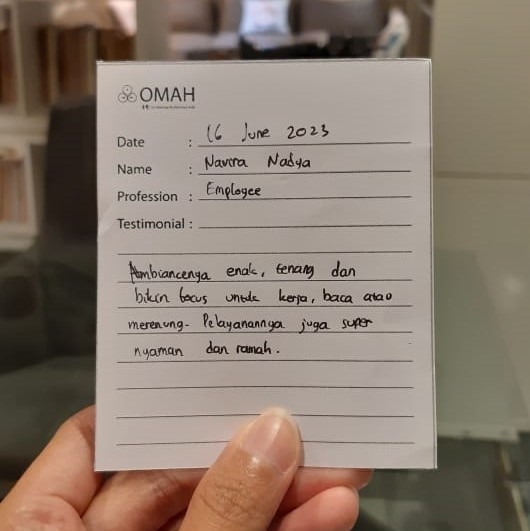 OMAH
Date : 16 June 2023
Name : Navira Nadya
Profession : Employee
Testimonial :
Ambiancenya enak, tenang dan
bikin focus untuk kerja, baca atao
merenung. Pelayanannya juga super
nyaman dan ramah.